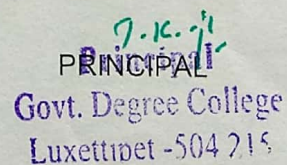 PRINCIPAL
Principal
Govt. Degree College
Luxettipet -504 215